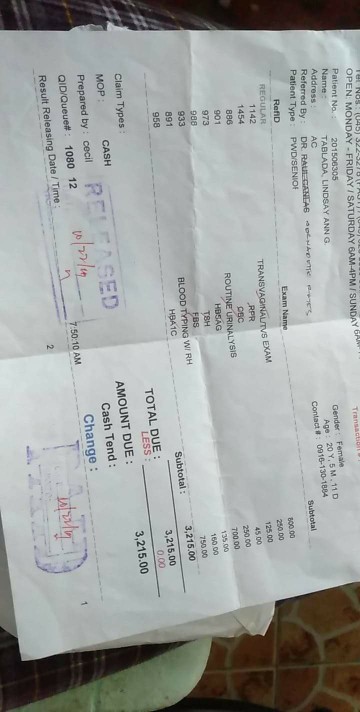 OPEN MONDAY - FRIDAY / SATURDAY 6AM-4PM / SUNDAY 6AM-
Patient No. 201506305
Name : TABLADA, LINDSAY ANN G.
Gender : Female
Address : AC
Age : 20 Y, 5 M, 11 D
Referred By : DR.
Contact # : 0916-130-1884
Patient Type : PWD/SENIOR
RefID Exam Name Subtotal
REGULAR
112 TRANSVAGINAL/TVS EXAM 800.00
1454 RPR 250.00
886 CBC 125.00
901 ROUTINE URINALYSIS 45.00
973 HBSAG 250.00
988 TSH 700.00
933 FBS 135.00
891 BLOOD TYPING W/ RH 160.00
958 HBA1C 750.00
Subtotal : 3,215.00
TOTAL DUE : 3,215.00
LESS : 0.00
AMOUNT DUE : 3,215.00
Cash Tend :
Change :
Claim Types :
MOP : CASH
Prepared by : cecil
QID/Queue# : 1080 12
Result Releasing Date / Time
7:50:10 AM
RELEASED
10/22/19
PAID
2
1